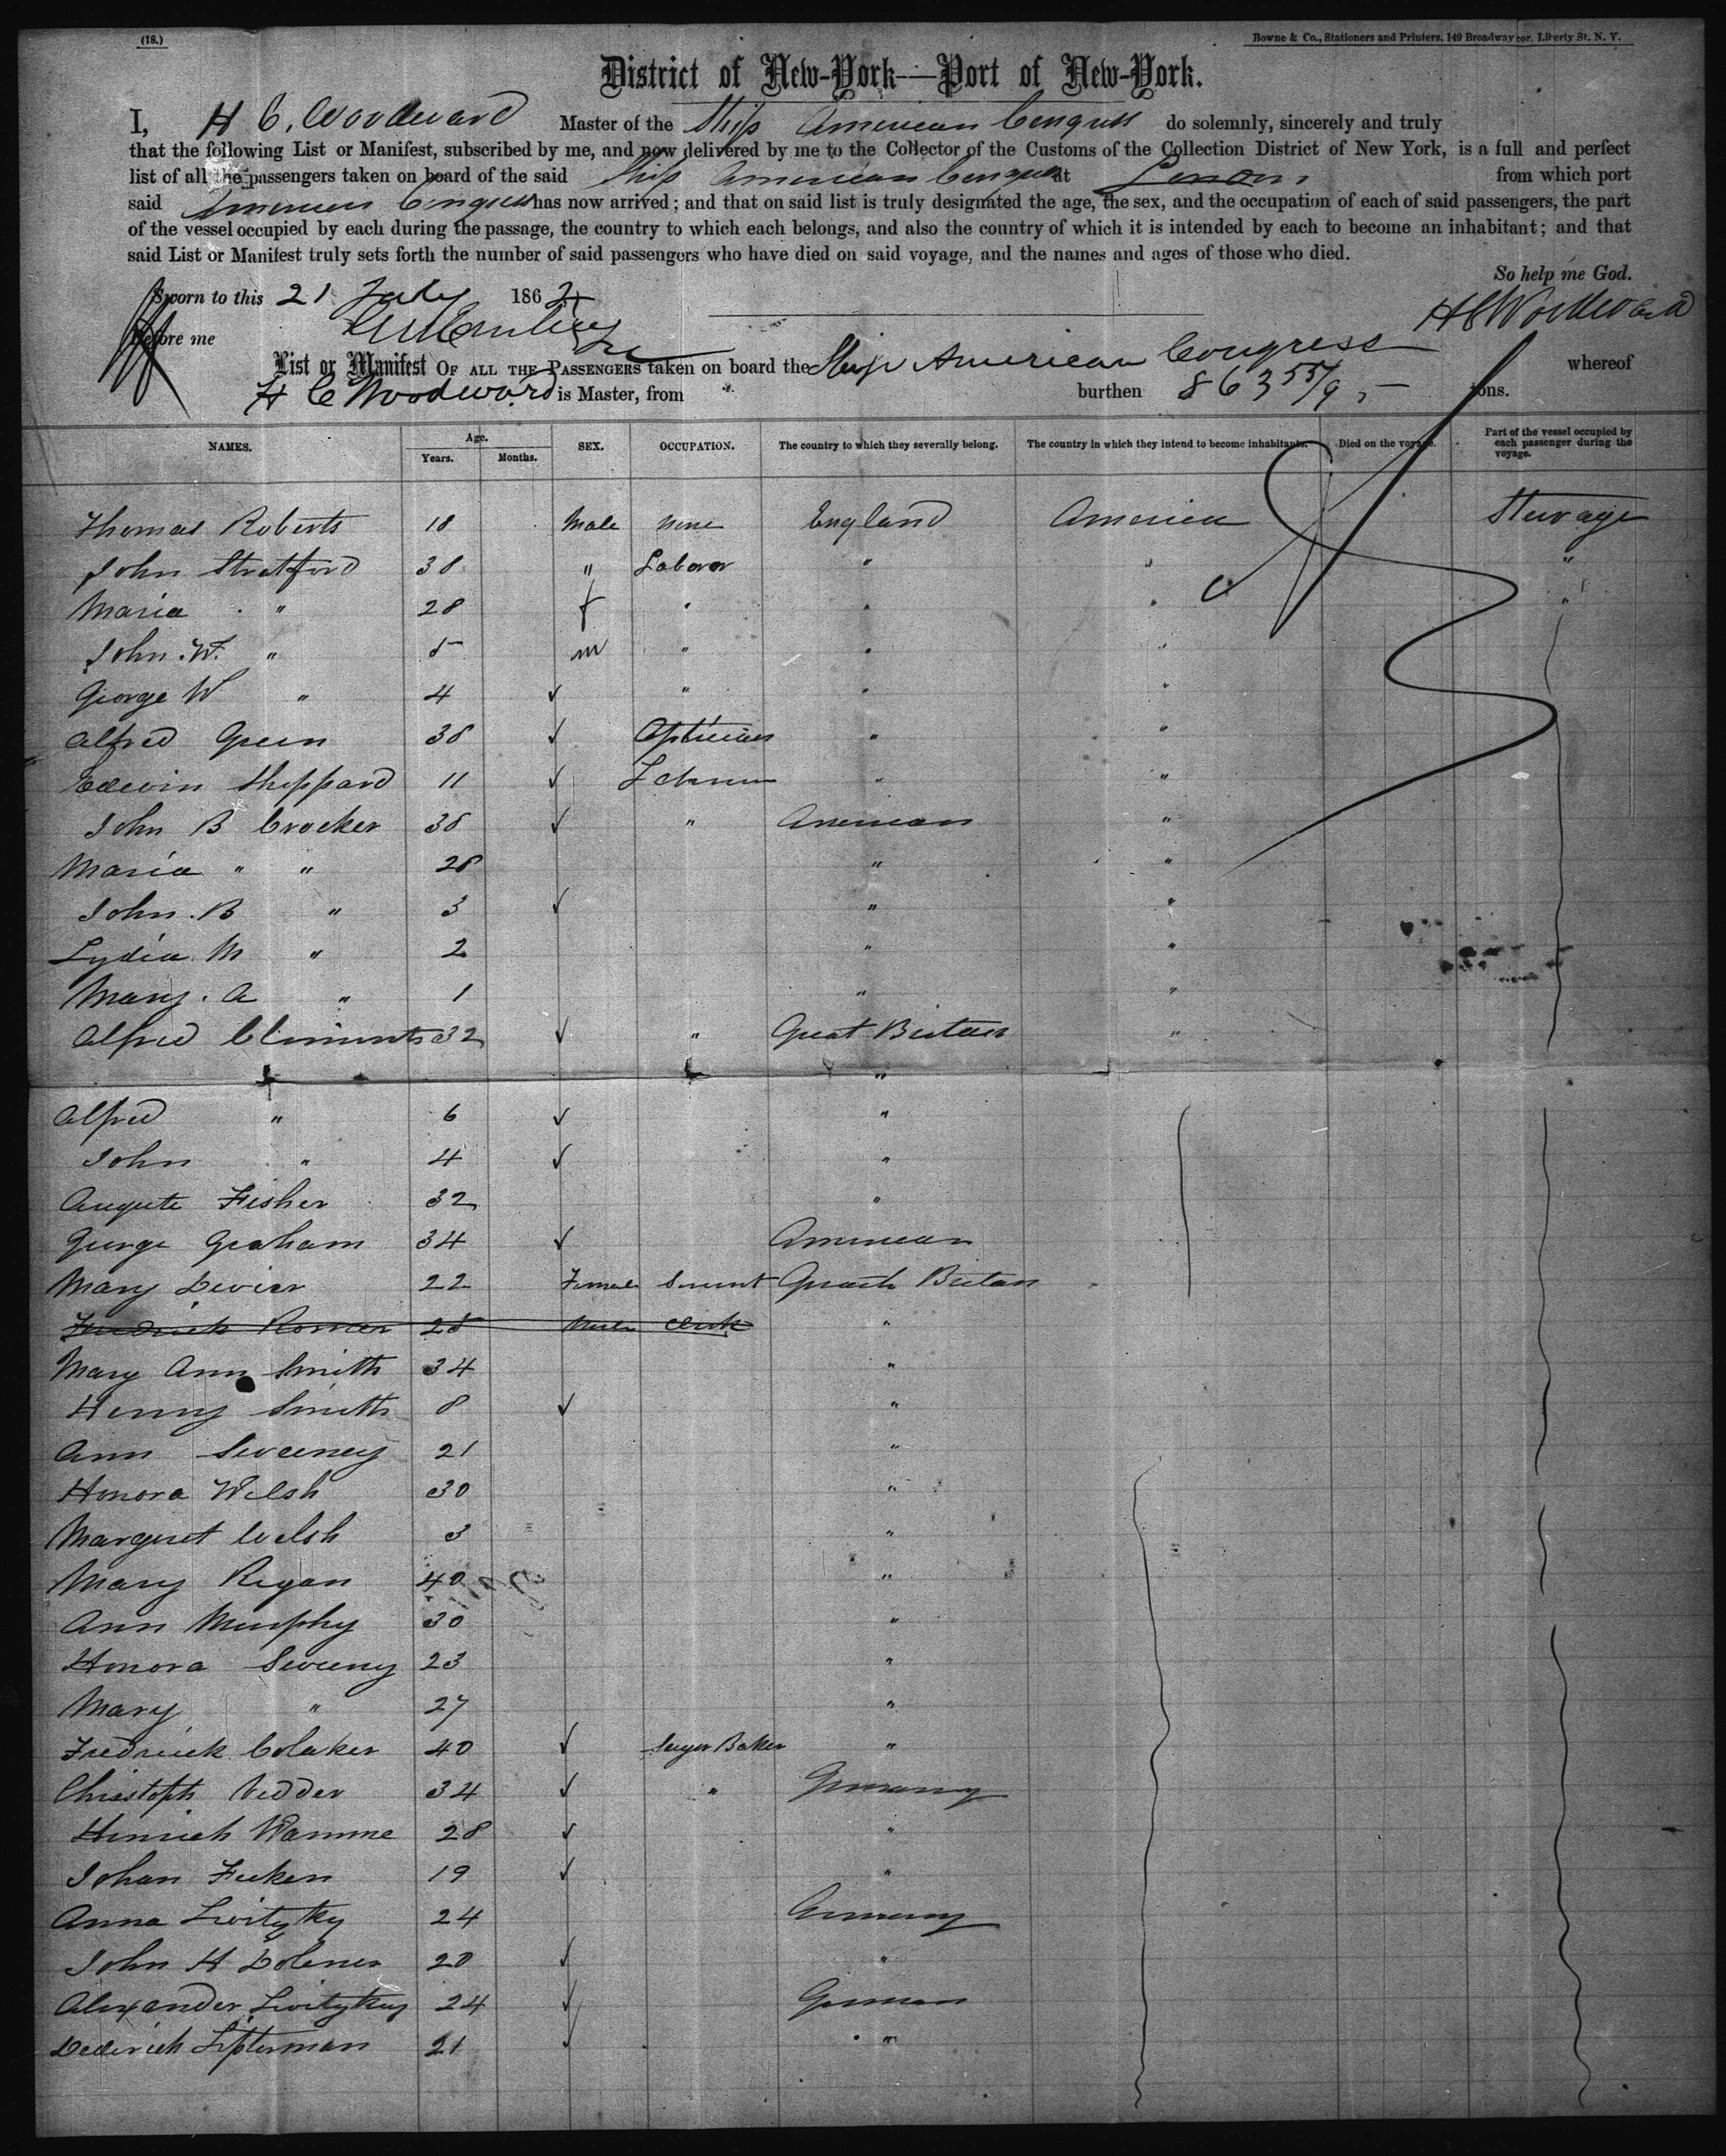 (18.)
Bowne & Co., Stationers and Printers, 149 Broadway cor. Liberty St. N. Y.
District of New-York—Port of New-York.
I, H C. Woodward Master of the Ship American Congress do solemnly, sincerely and truly
that the following List or Manifest, subscribed by me, and now delivered by me to the Collector of the Customs of the Collection District of New York, is a full and perfect
list of all the passengers taken on board of the said Ship American Congress at London from which port
said American Congress has now arrived; and that on said list is truly designated the age, the sex, and the occupation of each of said passengers, the part
of the vessel occupied by each during the passage, the country to which each belongs, and also the country of which it is intended by each to become an inhabitant; and that
said List or Manifest truly sets forth the number of said passengers who have died on said voyage, and the names and ages of those who died.
So help me God.
Sworn to this 21 July 1862
H C Woodward
Before me
List or Manifest OF ALL THE PASSENGERS taken on board the Ship American Congress whereof
H C Woodward is Master, from burthen 863 55/9 tons.
NAMES. Age. Years. Months. SEX. OCCUPATION. The country to which they severally belong. The country in which they intend to become inhabitants. Died on the voyage. Part of the vessel occupied by each passenger during the voyage.
Thomas Roberts 18 Male none England America Steerage
John Stratford 38 " Laborer " " "
Maria " 28 f " " " "
John. W. " 5 m " " "
George W " 4 ✓ " " "
Alfred Green 38 ✓ Optician " "
Edwin Sheppard 11 ✓ " "
John B Crocker 38 ✓ " American "
Maria " " 28 " "
John. B " 3 ✓ " "
Lydia M " 2 " "
Mary. A " 1 " "
Alfred Climents 32 ✓ " Great Britain "
"
Alfred " 6 ✓ "
John " 4 ✓ "
Augute Fisher 32 "
George Graham 34 ✓ American
Mary Devier 22 Female Servant Great Britan
Fredrick Romer 28 Male Clerk "
Mary Ann Smith 34 "
Henry Smith 8 ✓ "
Ann Sweeney 21 "
Honora Welsh 30 "
Margret Welsh 3 "
Mary Regan 40 "
Ann Murphy 30 "
Honora Sweeny 23 "
Mary " 27 "
Fredrick Colaker 40 ✓ Suger Baker "
Christoph Vedder 34 ✓ " Germany
Hinrich Wamme 28 ✓ "
Johan Fecken 19 ✓ "
Anna Lwitytky 24 Germany
John H Dolener 20 ✓ "
Alexander Lwitytky 24 ✓ German
Dederich Lifterman 21 ✓ "